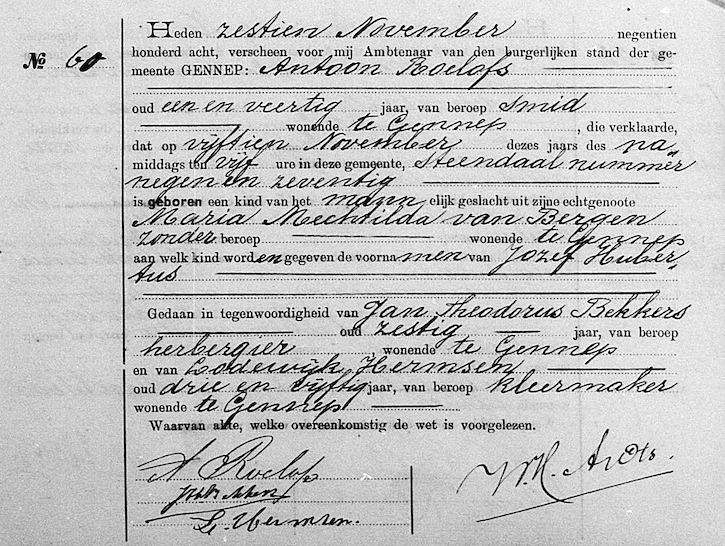 Heden zestien November negentien
No 60
honderd acht, verscheen voor mij Ambtenaar van den burgerlijken stand der ge-
meente GENNEP: Antoon Roelofs
oud een en veertig jaar, van beroep smid
wonende te Gennep, die verklaarde,
dat op vijftien November dezes jaars des na-
middags ten vijf ure in deze gemeente, Steendaal nummer
negen en zeventig
is geboren een kind van het mannelijk geslacht uit zijne echtgenoote
Maria Mechtilda van Bergen
zonder beroep wonende te Gennep
aan welk kind worden gegeven de voornamen van Jozef Huber-
tus
Gedaan in tegenwoordigheid van Jan Theodorus Bekkers
oud zestig jaar, van beroep
herbergier wonende te Gennep
en van Lodewijk Hermsen
oud drie en vijftig jaar, van beroep kleermaker
wonende te Gennep
Waarvan akte, welke overeenkomstig de wet is voorgelezen.
A Roelofs
L. Hermsen.